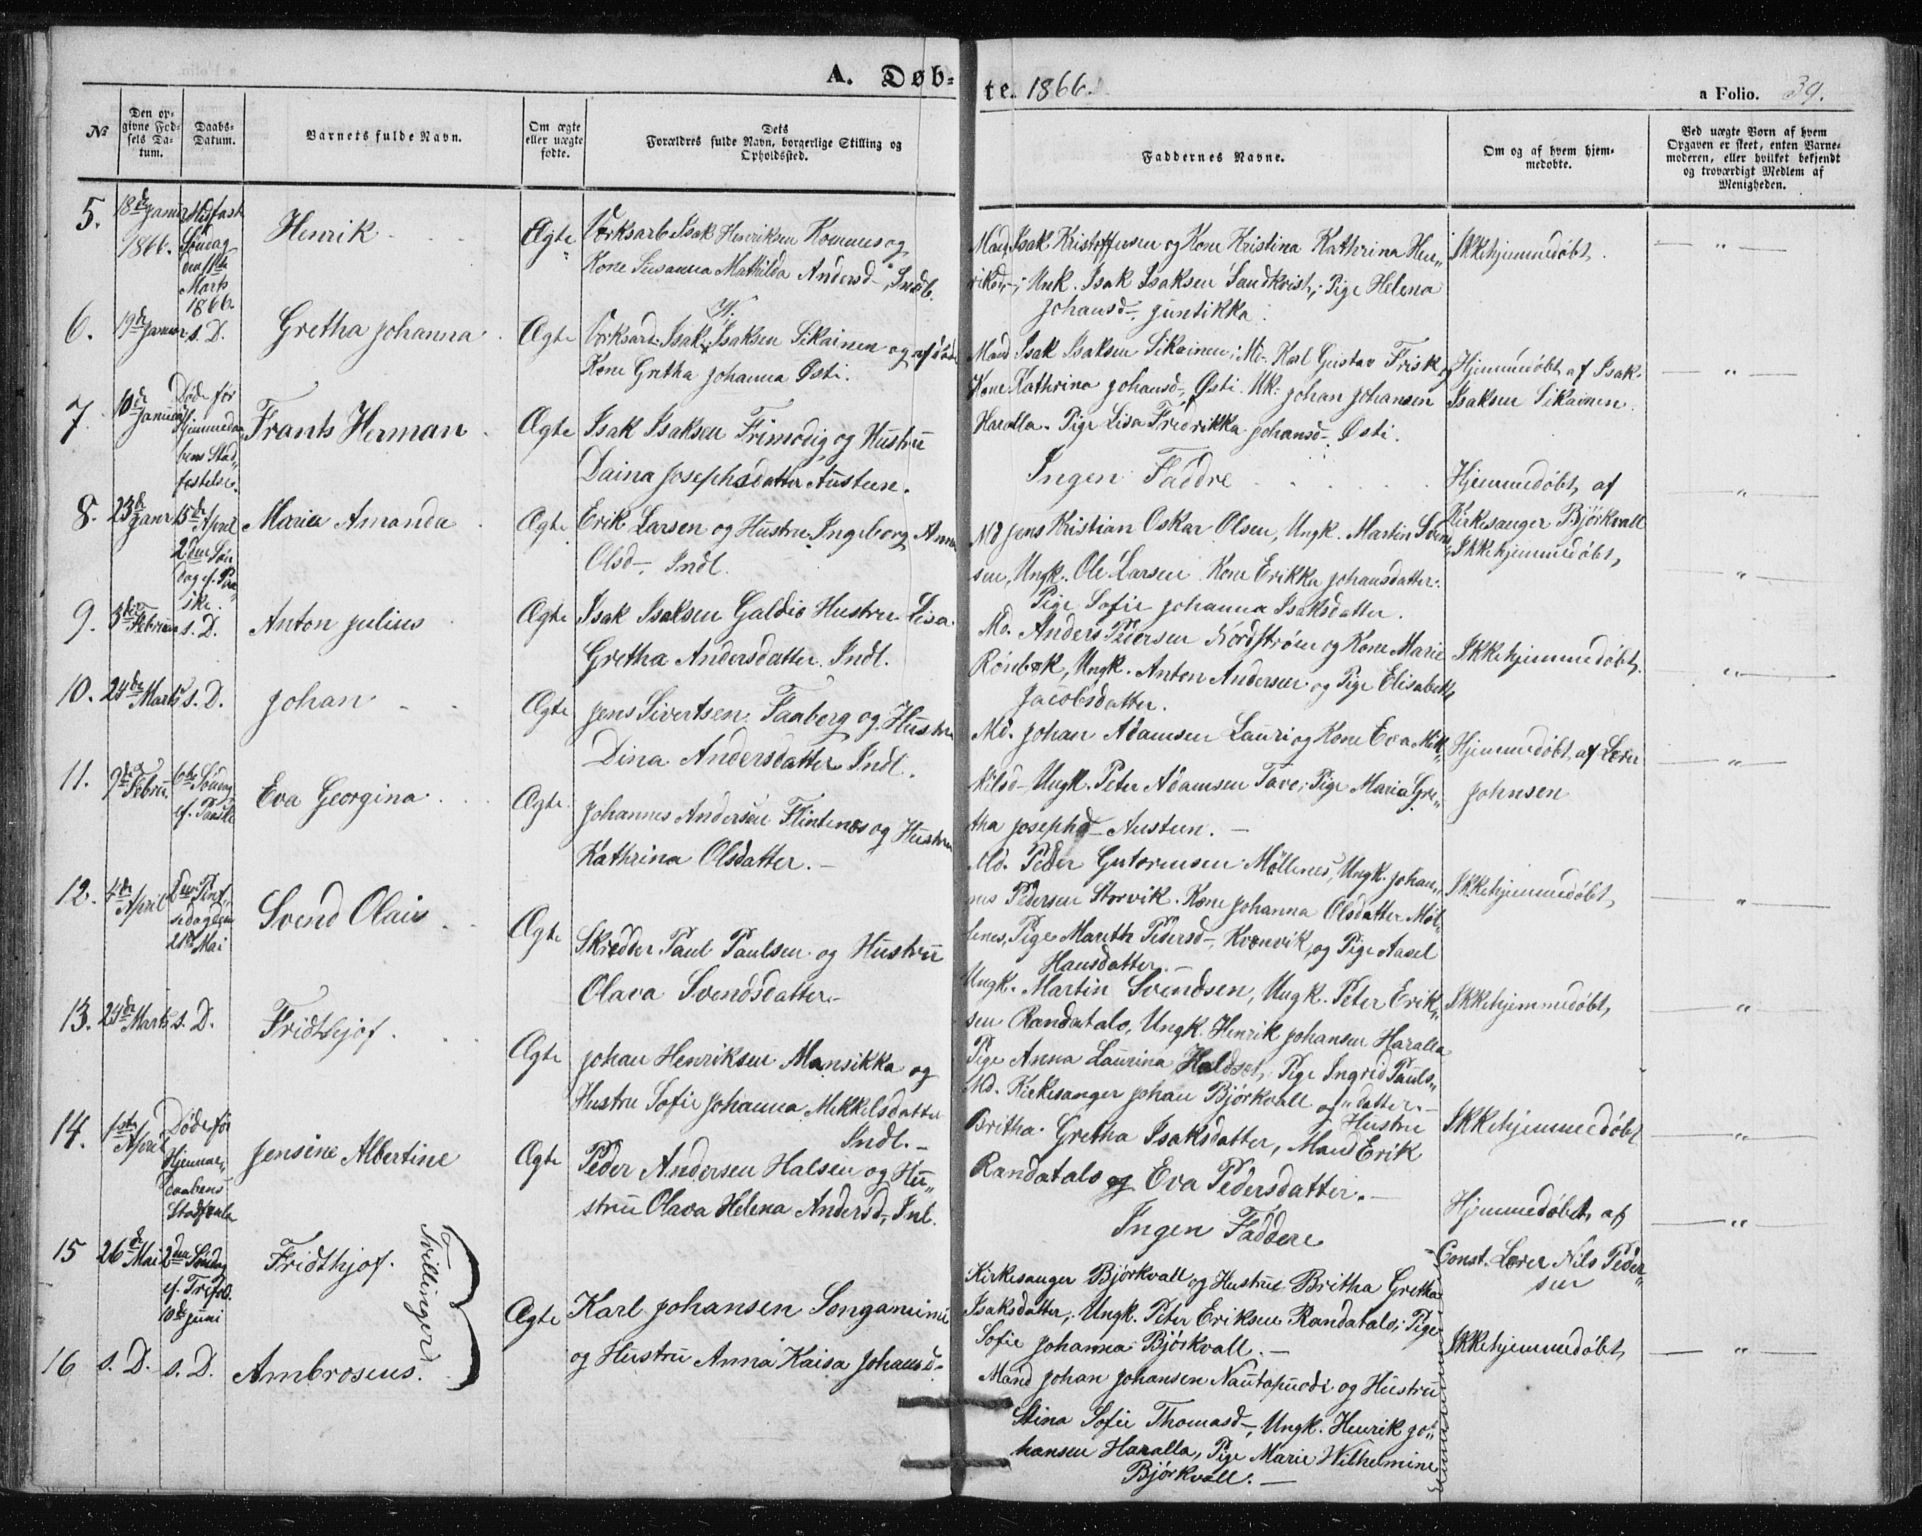 A. Døb-
te. 1866.
a Folio. 39.
No
Den op-
givne Fød-
sels Da-
tum.
Daabs-
Datum.
Barnets fulde Navn.
Om ægte
eller uægte
fødte.
Dets
Forældres fulde Navn, borgerlige Stilling og
Opholdssted.
Faddernes Navne.
Om og af hvem hjem-
medøbte.
Ved uægte Børn af hvem
Opgaven er skeet, enten Barne-
moderen, eller hvilket bekjendt
og troværdigt Medlem af
Menigheden.
5.
18de Januar
1866.
Midfaste
Søndag
den 11te
Marts
1866.
Henrik
Ægte
Værksarb Isak Henriksen og
Kone Susanna Mathilda Andersd-, Indl.
Mand Isak Kristoffersen og Kone Kristina Kathrina Hen-
riksd-; Unk. Isak Isaksen Sandkvist; Pige Helena
Johansd-. Juntikka.
Ikkehjemmedøbt.
6.
19de Januar
s. D.
Gretha Johanna
Ægte
Værksarb. Isak Isaksen Sikainen og
Kone Gretha Johanna Østi.
Mand Isak Isaksen Sikainen; Md. Karl Gustav Frisk og
Kone Kathrina Johansd-, Østi. Uk. Johan Johansen
Haralla. Pige Lisa Fredrikka Johansd-. Østi.
Hjemmedøbt af Isak
Isaksen Sikainen.
7.
10de
Januar
Døde før
Hjemmedaa
bens Stad-
festelse.
Frants Herman
Ægte
Isak Isaksen Frimodig og Hustru
Daina Josephsdatter Austeen.
Ingen Faddre
Hjemmedøbt af
Kirkesanger Björkvall
8.
23de
Janr
15de April
2den Søn
dag ef. Paa-
ske.
Maria Amanda
Ægte
Erik Larsen og Hustru Ingeborg Anna
Olsd-. Indl.
Md Jens Kristian Oskar Olsen, Ungk. Martin Svend-
sen, Ungk. Ole Larsen. Kone Erikka Johansdatter.
Pige Sofie Johanna Isaksdatter.
Ikkehjemmedøbt,
9.
3die Februar
s. D.
Anton Julius
Ægte
Isak Isaksen Galdio Hustru Lisa
Gretha Andersdatter. Indl.
Md. Anders Pedersen Nordstrøm og Kone Marie
Rönbæk, Ungk. Anton Andersen og Pige Elisabeth
Jacobsdatter.
Ikkehjemmedøbt,
10.
24de Marts
s. D.
Johan
Ægte
Jens Sivertsen Faaborg og Hustru
Dina Andersdatter Indl.
Md. Johan Adamsen Lauri og Kone Eva
Nilsd- Ungk. Peter Adamsen Tave; Pige Maria Gre-
tha Josephd- Austeen. -
Hjemmedøbt, af Lærer
Johnsen
11.
9de Febru.
6te Søndag
ef. Paaske
Eva Georgina
Ægte
Johannes Andersen Flintenæs og Hustru
Kathrina Olsdatter. -
Md. Peder Gutormsen Møllenes, Ungk. Johan-
nes Pedersen Storvik. Kone Johanna Olsdatter Møl-
lenes, Pige Mareth Pedersd-, Kvænvik, og Pige Aasel
Hansdatter. -
Ikkehjemmedøbt,
12.
4de April
2den Pint-
sedag den
21de Mai
Svend Olais
Ægte
Skredder Paul Paulsen og Hustru
Olava Svendsdatter. -
Ungk. Martin Svendsen, Ungk. Peter Erik-
sen Randatalo, Ungk. Henrik Johansen Haralla
Pige Anna Laurina Haldset, Pige Ingrid Pauls-
datter. -
Ikkehjemmedøbt,
13.
24de Marts
s. D.
Fridthjof.
Ægte
Johan Henriksen Mansikka og
Hustru Sofie Johanna Mikkelsdatter
Indl. -
Md. Kirkesanger Johan Björkvall og Hustru
Britha Gretha Isaksdatter, Mand Erik
Randatalo og Eva Pedersdatter. -
Ikkehjemmedøbt
14.
1ste
April
Døde før
Hjemme-
daabens
Jensine Albertine
Ægte
Peder Andersen Halsen og Hu-
stru Olava Helena Andersd-, Inl.
Ingen Faddere
Hjemmedøbt, af
Const. Lærer Nils Peder-
sen
15
26de Mai
2den Søndag
ef. Trefol.
10de Juni
Fridthjof.
Tvillinger
Ægte
Karl Johansen
og Hustru Anna Kaisa Johansd-
Kirkesanger Björkvall og Hustru Britha Gretha
Isaksdatter, Ungk. Peter Eriksen Randatalo; Pige
Sofie Johanna Björkvall. -
Ikkehjemmedøbt,
16
s. D.
s. D.
Ambrosius.
Mand Johan Johansen og Hustru
Stina Sofie Thomasd-, Ungk. Henrik Jo-
hansen Haralla, Pige Marie Wilhelmine
Björkvall. -